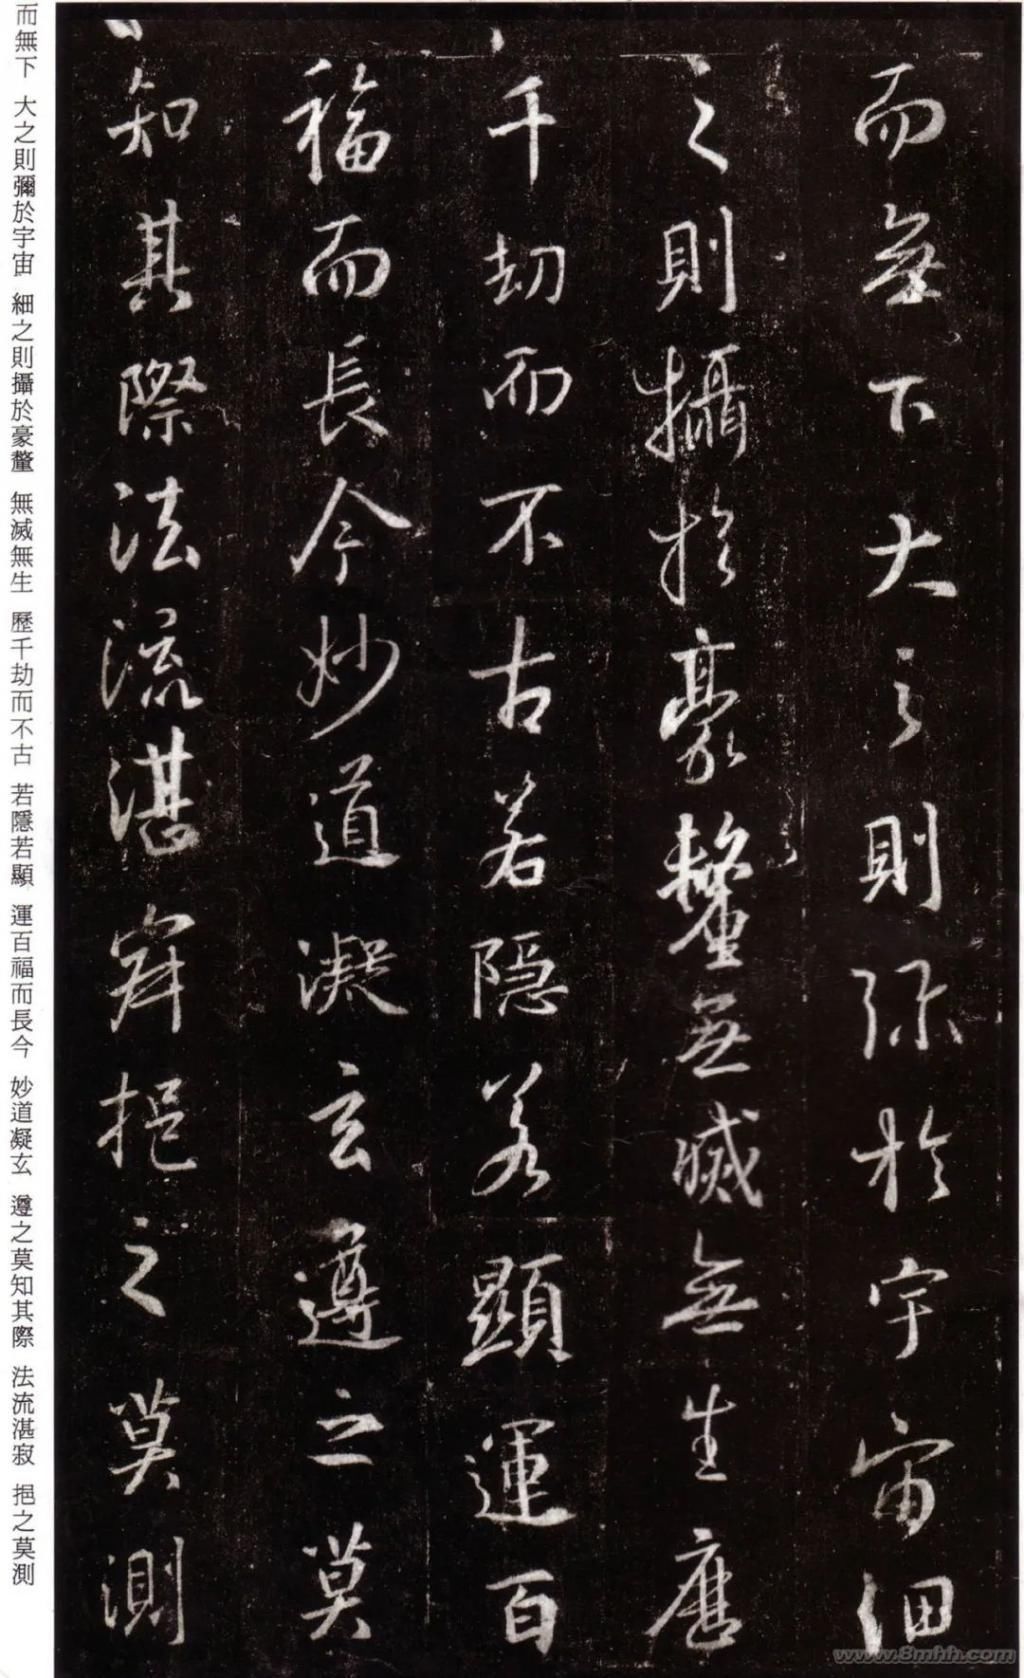 而無下大之則彌於宇宙細
之則攝於豪釐無滅無生歷
千劫而不古若隱若顯運百
福而長今妙道凝玄遵之莫
知其際法流湛寂挹之莫測
而無下 大之則彌於宇宙 細之則攝於豪釐 無滅無生 歷千劫而不古 若隱若顯 運百福而長今 妙道凝玄 遵之莫知其際 法流湛寂 挹之莫測
www.8mhh.com